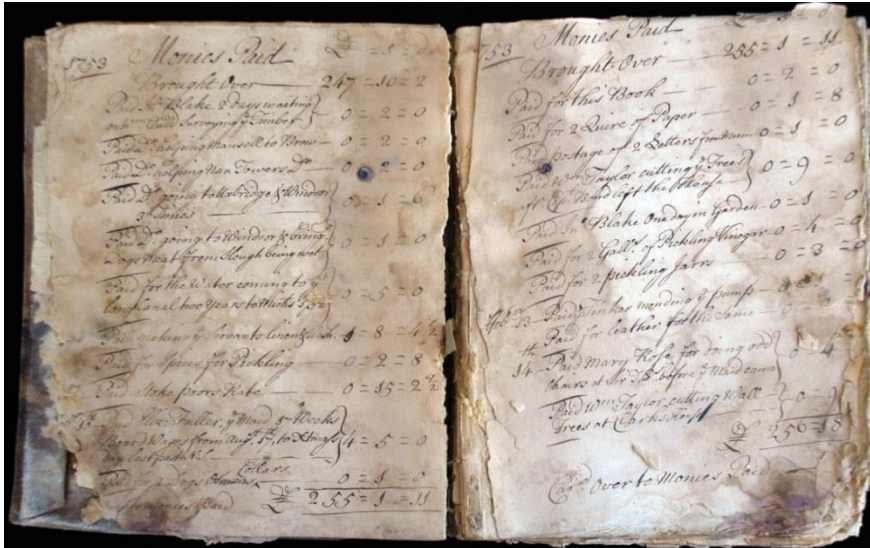 1753 Monies Paid
Brought Over — 247 = 10 = 2
Paid Jno. Blake 2 days waiting
Surveying ye Timber — 0 = 2 = 0
Paid Do. helping Mansell to Brew — 0 = 2 = 0
Paid Do. helping Nan Towers Do. 0 = 2 = 0
Paid Do. going to Uxbridge & Windsor
0 = 1 = 6
Paid Do. going to Windsor & bring
Dogs Meat from Slough being wet 0 = 1 = 0
Paid for the Water coming to ye
long Canal two Years to Michs 1752 0 = 5 = 0
Paid making ye Servants linnen 1 = 8 = 4 1/2
Paid for Spices for Pickling 0 = 2 = 8
Paid Stoke poors Rate 0 = 15 = 2 1/2
Paid Fuller, ye Maid 17 Weeks
Board Wages from Augt. to
day last past 4 = 5 = 0
Collars
Paid for 2 Dogs 0 = 1 = 0
Monies Paid 255 = 1 = 11
1753 Monies Paid
Brought Over 255 = 1 = 11
Paid for this Book — 0 = 2 = 0
Paid for 2 Quire of Paper 0 = 1 = 8
Pd postage of 2 Letters from 0 = 1 = 0
Paid Wm. Taylor cutting ye Trees
aft. Ward left the House 0 = 9 = 0
Paid Jno. Blake One day in Garden 0 = 1 = 0
Paid for 2 Galls. of Pickling Vinegar 0 = 4 = 0
Paid for 2 pickling Jarrs — 0 = 3 = 0
13 Paid Tinker mending ye pump
Paid for leather for the Same
14 Paid Mary Rose for doing odd
Chairs at before ye Maid came 0 = 4
Paid Wm Taylor cutting Wall
Trees at Clarks House
256 = 18
Card. Over to Monies Paid